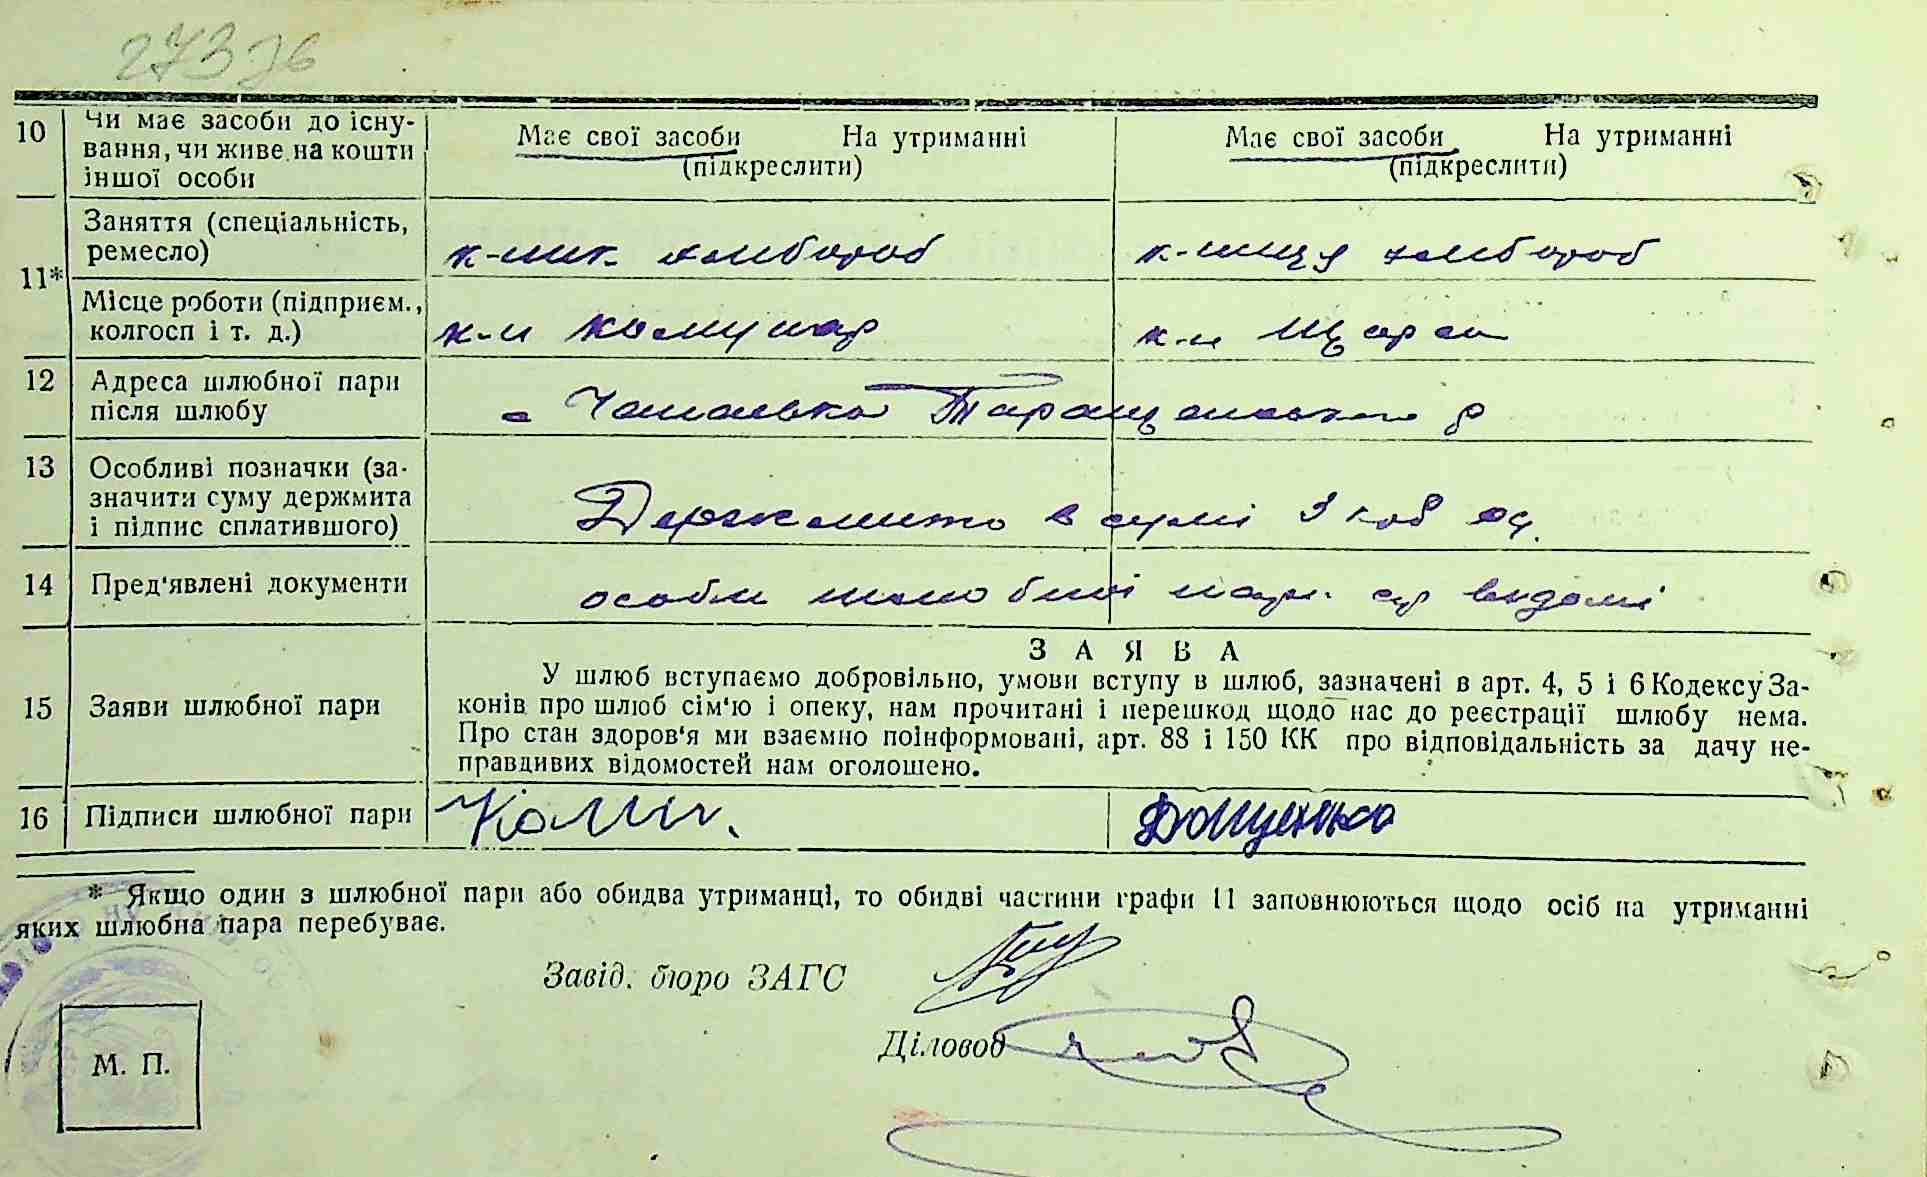 273 зв
10
Чи має засоби до існу-
вання, чи живе на кошти
іншої особи
Має свої засоби На утриманні
(підкреслити)
Має свої засоби На утриманні
(підкреслити)
11*
Заняття (спеціальність,
ремесло)
к-ник хлібороб
к-ниця хлібороб
Місце роботи (підприєм.,
колгосп і т. д.)
к-п Комунар
к-п
12
Адреса шлюбної пари
після шлюбу
Таращанського р
13
Особливі позначки (за-
значити суму держмита
і підпис сплатившого)
Держмито в сумі 3 коб
14
Пред'явлені документи
особи шлюбної пари с/р видомі
З А Я В А
15
Заяви шлюбної пари
У шлюб вступаємо добровільно, умови вступу в шлюб, зазначені в арт. 4, 5 і 6 Кодексу За-
конів про шлюб сім'ю і опеку, нам прочитані і перешкод щодо нас до реєстрації шлюбу нема.
Про стан здоров'я ми взаємно поінформовані, арт. 88 і 150 КК про відповідальність за дачу не-
правдивих відомостей нам оголошено.
16
Підписи шлюбної пари
* Якщо один з шлюбної пари або обидва утриманці, то обидві частини графи 11 заповнюються щодо осіб на утриманні
яких шлюбна пара перебуває.
Завід. бюро ЗАГС
Діловод
М. П.